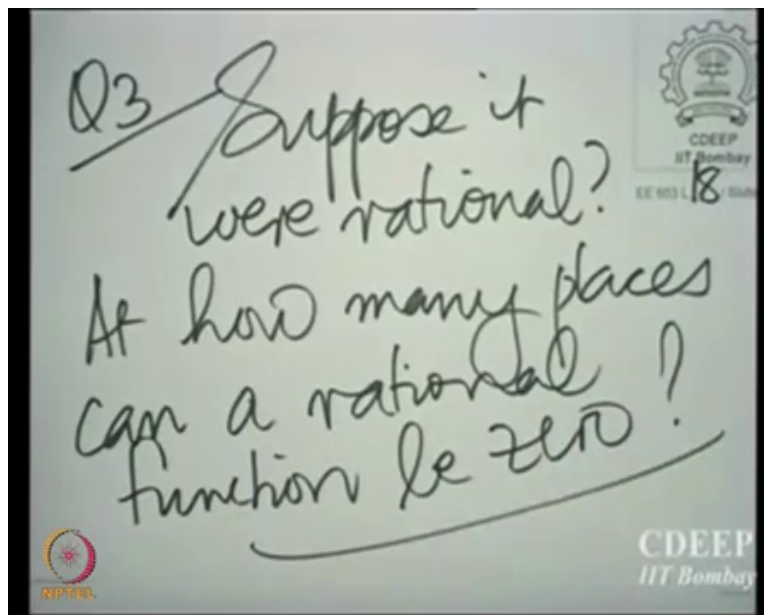 Q3 Suppose it
were rational?
At how many places
can a rational
function be zero?
CDEEP
IIT Bombay
EE 603 L 18 / Slide
NPTEL
CDEEP
IIT Bombay